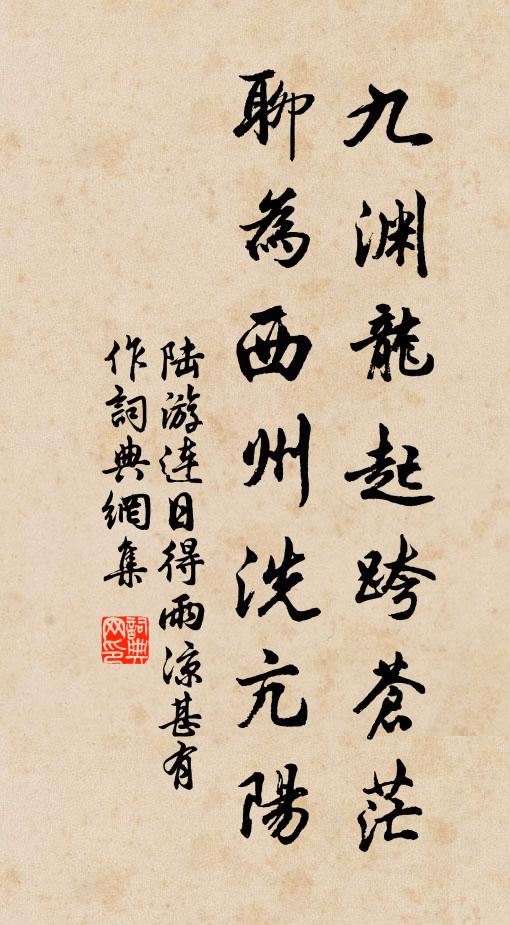 九渊龍起跨蒼茫
聊為西州洗亢陽
陆游连日得雨凉甚有
作詞典網集
詞典网印